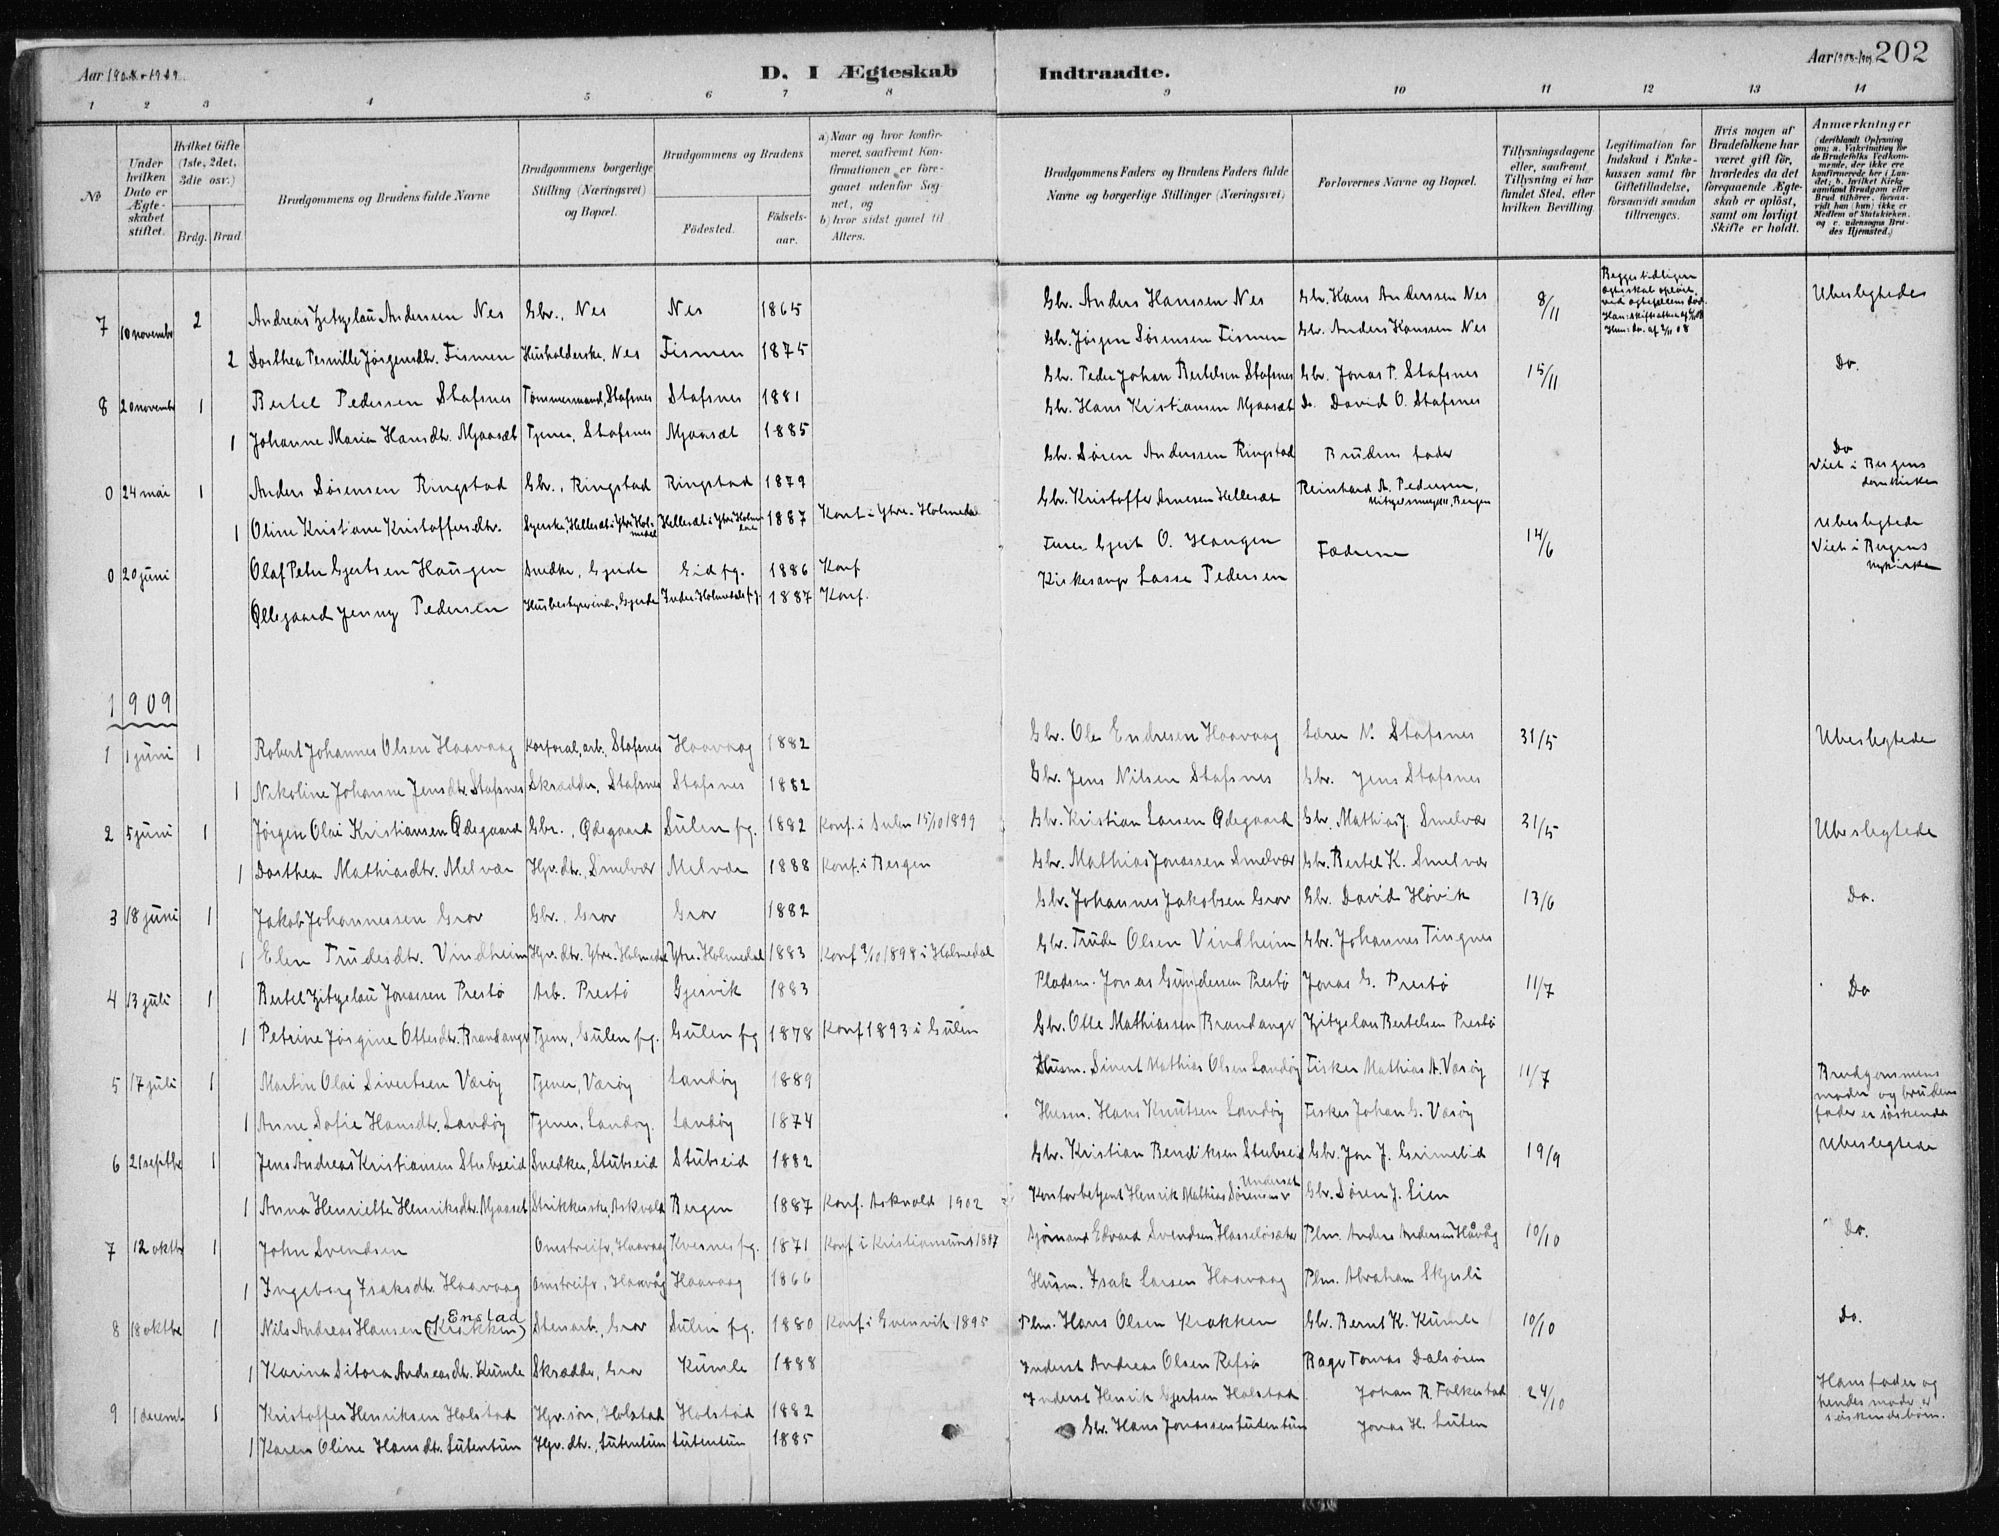 Aar 1908-1909. D. I Ægteskab Indtraadte. Aar 1908-1909. 202
1 2 3 4 5 6 7 8 9 10 11 12 13 14
No
Under hvilken Dato er Ægteskabet stiftet.
Hvilket Gifte (1ste, 2det, 3die osv.)
Brdg. Brud.
Brudgommens og Brudens fulde Navne
Brudgommens borgerlige Stilling (Næringsvei) og Bopæl.
Brudgommens og Brudens
Födested. Födsels-aar.
a) Naar og hvor konfirmeret, saafremt Konfirmationen er foregaaet udenfor Sognet, og
b) hvor sidst gaaet til Alters.
Brudgommens Faders og Brudens Faders fulde Navne og borgerlige Stillinger (Næringsvei)
Forlovernes Navne og Bopæl.
Tillysningsdagene eller, saafremt Tillysning ei har fundet Sted, efter hvilken Bevilling.
Legitimation for Indskud i Enkekassen samt for Giftetilladelse, forsaavidt saadan tiltrænges.
Hvis nogen af Brudefolkene har været gift för, hvorledes da det foregaaende Ægteskab er oplöst, samt om lovligt Skifte er holdt.
Anmærkninger
(deriblandt Oplysning om: a. Vakcination for de Brudefolks Vedkommende, der ikke ere konfirmerede her i Landet; b. hvilket Kirkesamfund Brudgom eller Brud tilhörer, forsaavidt han (hun) ikke er Medlem af Statskirken, og c. udensogns Brudes Hjemsted.)
7 10 novembr 2 Andreas Zetzelau Anderssen Nes Gbr., Nes Nes 1865 Gbr. Anders Hanssen Nes Gbr. Hans Anderssen Nes 8/11 Ubeslegtede
2 Dorthea Pernille Jørgensdtr. Fismen Husholderske, Nes Fismen 1875 Gbr. Jørgen Sørensen Fismen Gbr. Anders Hanssen Nes
8 20 novembr 1 Bertel Pedersen Stafsnes Tømmermand, Stafsnes Stafsnes 1881 Gbr. Peder Johan Bertelsen Stafsnes Gbr. Jonas P. Stafsnes 15/11 Do.
1 Johanne Marie Hansdtr. Mjaaset Tjener, Stafsnes Mjaaset 1885 Gbr. Hans Kristiansen Mjaaset Do. David O. Stafsnes
0 24 mai 1 Anders Sørensen Ringstad Gbr., Ringstad Ringstad 1879 Gbr. Søren Anderssen Ringstad Brudens fader Do Viet i Bergens domkirke
1 Oline Kristiane Kristoffersdtr. Syerske, Hellesæt i Ytre Holmedal Hellesæt i Ytre Holmedal 1887 Konf. i Ytre-Holmedal Gbr. Kristoffer Hellesæt Reinhard A. Pedersen, Bergen
0 20 juni Olaf Peter Gjertsen Haugen Snedker, Gjerde Eid pg. 1886 Konf Gjert O. Haugen Fædrene 14/6 Ubeslegtede Viet i Bergens Nykirke
Øllegaard Jenny Pedersen Husbestyrerinde, Gjerde Indre-Holmedals pg. 1887 Konf. Kirkesanger Lasse Pedersen
1909
1 1 juni 1 Robert Johannes Olsen Haavaag Korporal, arb. Stafsnes Haavaag 1882 Gbr. Ole Endresen Haavaag Lærer N. Stafsnes 31/5 Ubeslegtede
1 Nikoline Johanne Jensdtr. Stafsnes Skrædder, Stafsnes Stafsnes 1882 Gbr. Jens Nilsen Stafsnes Gbr. Jens Stafsnes
2 5 juni 1 Jørgen Olai Kristiansen Ødegaard Gbr., Ødegaard Sulen pg. 1882 Konf. i Sulen 15/10 1899 Gbr. Kristian Larsen Ødegaard Gbr. Mathias J. Smelvær 31/5 Ubeslegtede
1 Dorthea Mathiasdtr. Melvær Hgr.dtr., Smelvær Melvær 1888 Konf. i Bergen Gbr. Mathias Jonassen Smelvær Gbr. Bertel K. Smelvær
3 18 juni 1 Jakob Johannessen Grov Gbr. Grov Grov 1882 Gbr. Johannes Jakobsen Grov Gbr. David Høvik 13/6 Do.
1 Elen Trudesdtr. Vindheim Hgr.dtr. Ytre-Holmedal Ytre-Holmedal 1883 Konf 2/10 1898 i Holmedal Gbr. Trude Olsen Vindheim Gbr. Johannes Tingnes
4 13 juli 1 Bertel Zetzelau Jonassen Prestø Arb. Prestø Gjesvik 1883 Pladsm. Jonas Gundersen Prestø Jonas G. Prestø 11/7 Do
1 Petrine Jørgine Ottesdtr. Brandanger Tjener, Gulen pg. Gulen pg 1878 Konf 1893 i Gulen Gbr. Otte Mathiassen Brandanger Zitzelau Bertelsen Prestø
5 17 juli 1 Martin Olai Sivertsen Værøy Tjener, Værøy Landøy 1889 Husm. Sivert Mathias Olsen Landøy Fisker Mathias A. Værøy 11/7 Brudgommens moder og brudens fader er søskende
1 Anne Sofie Hansdtr. Landøy Tjener, Landøy. Landøy 1874 Husm. Hans Knutsen Landøy Fisker Johan G. Værøy
6 21 septbr 1 Jens Andreas Kristiansen Stubseid Snedker, Stubseid Stubseid 1882 Gbr. Kristian Bendiksen Stubseid Gbr. Jon J. Grimelid 19/9 Ubeslegtede
1 Anna Henriette Henriksdtr. Mjaaset Strikkerske, Askvold Bergen 1887 Konf. Askvold 1902 Kontorbetjent Henrik Mathias Sørensen Underset Gbr. Søren J. Lien
7 12 oktbr 1 John Svendsen Omstreifer, Haavaag Kvernes pg. 1871 Konf i Kristiansund 1887 Sjømand Edvard Svendsen, Hasseløsæter Plm. Anders Andersen Håvåg 10/10 Do.
1 Ingeborg Isaksdtr. Haavaag Omstreifer, Haavåg Haavaag 1866 Husm. Isak Larsen Haavaag Plm. Abraham Skjerli
8 18 oktbr 1 Nils Andreas Hansen (Krakken) Enstad Stenarb., Grov Sulen pg. 1880 Konf. i Evenvik 1895 Plm. Hans Olsen Krakken Gbr. Bernt K. Kumle 10/10 Do.
1 Karina Sitora Andreasdtr. Kumle Skrædder, Grov Kumle 1888 Inderst Andreas Olsen Refsø Bager Tomas Dalsøren
9 1 decembr 1 Kristoffer Henriksen Holstad Hgr.søn, Holstad Holstad 1882 Inderst Henrik Gjertsen Holstad Johan R. Folkestad 24/10 Hans fader og hendes moder er søskendebørn.
1 Karen Oline Hansdtr. Lutentun Hgr.dtr., Lutentun Lutentun 1885 Gbr. Hans Jonassen Lutentun Jonas H. Luten